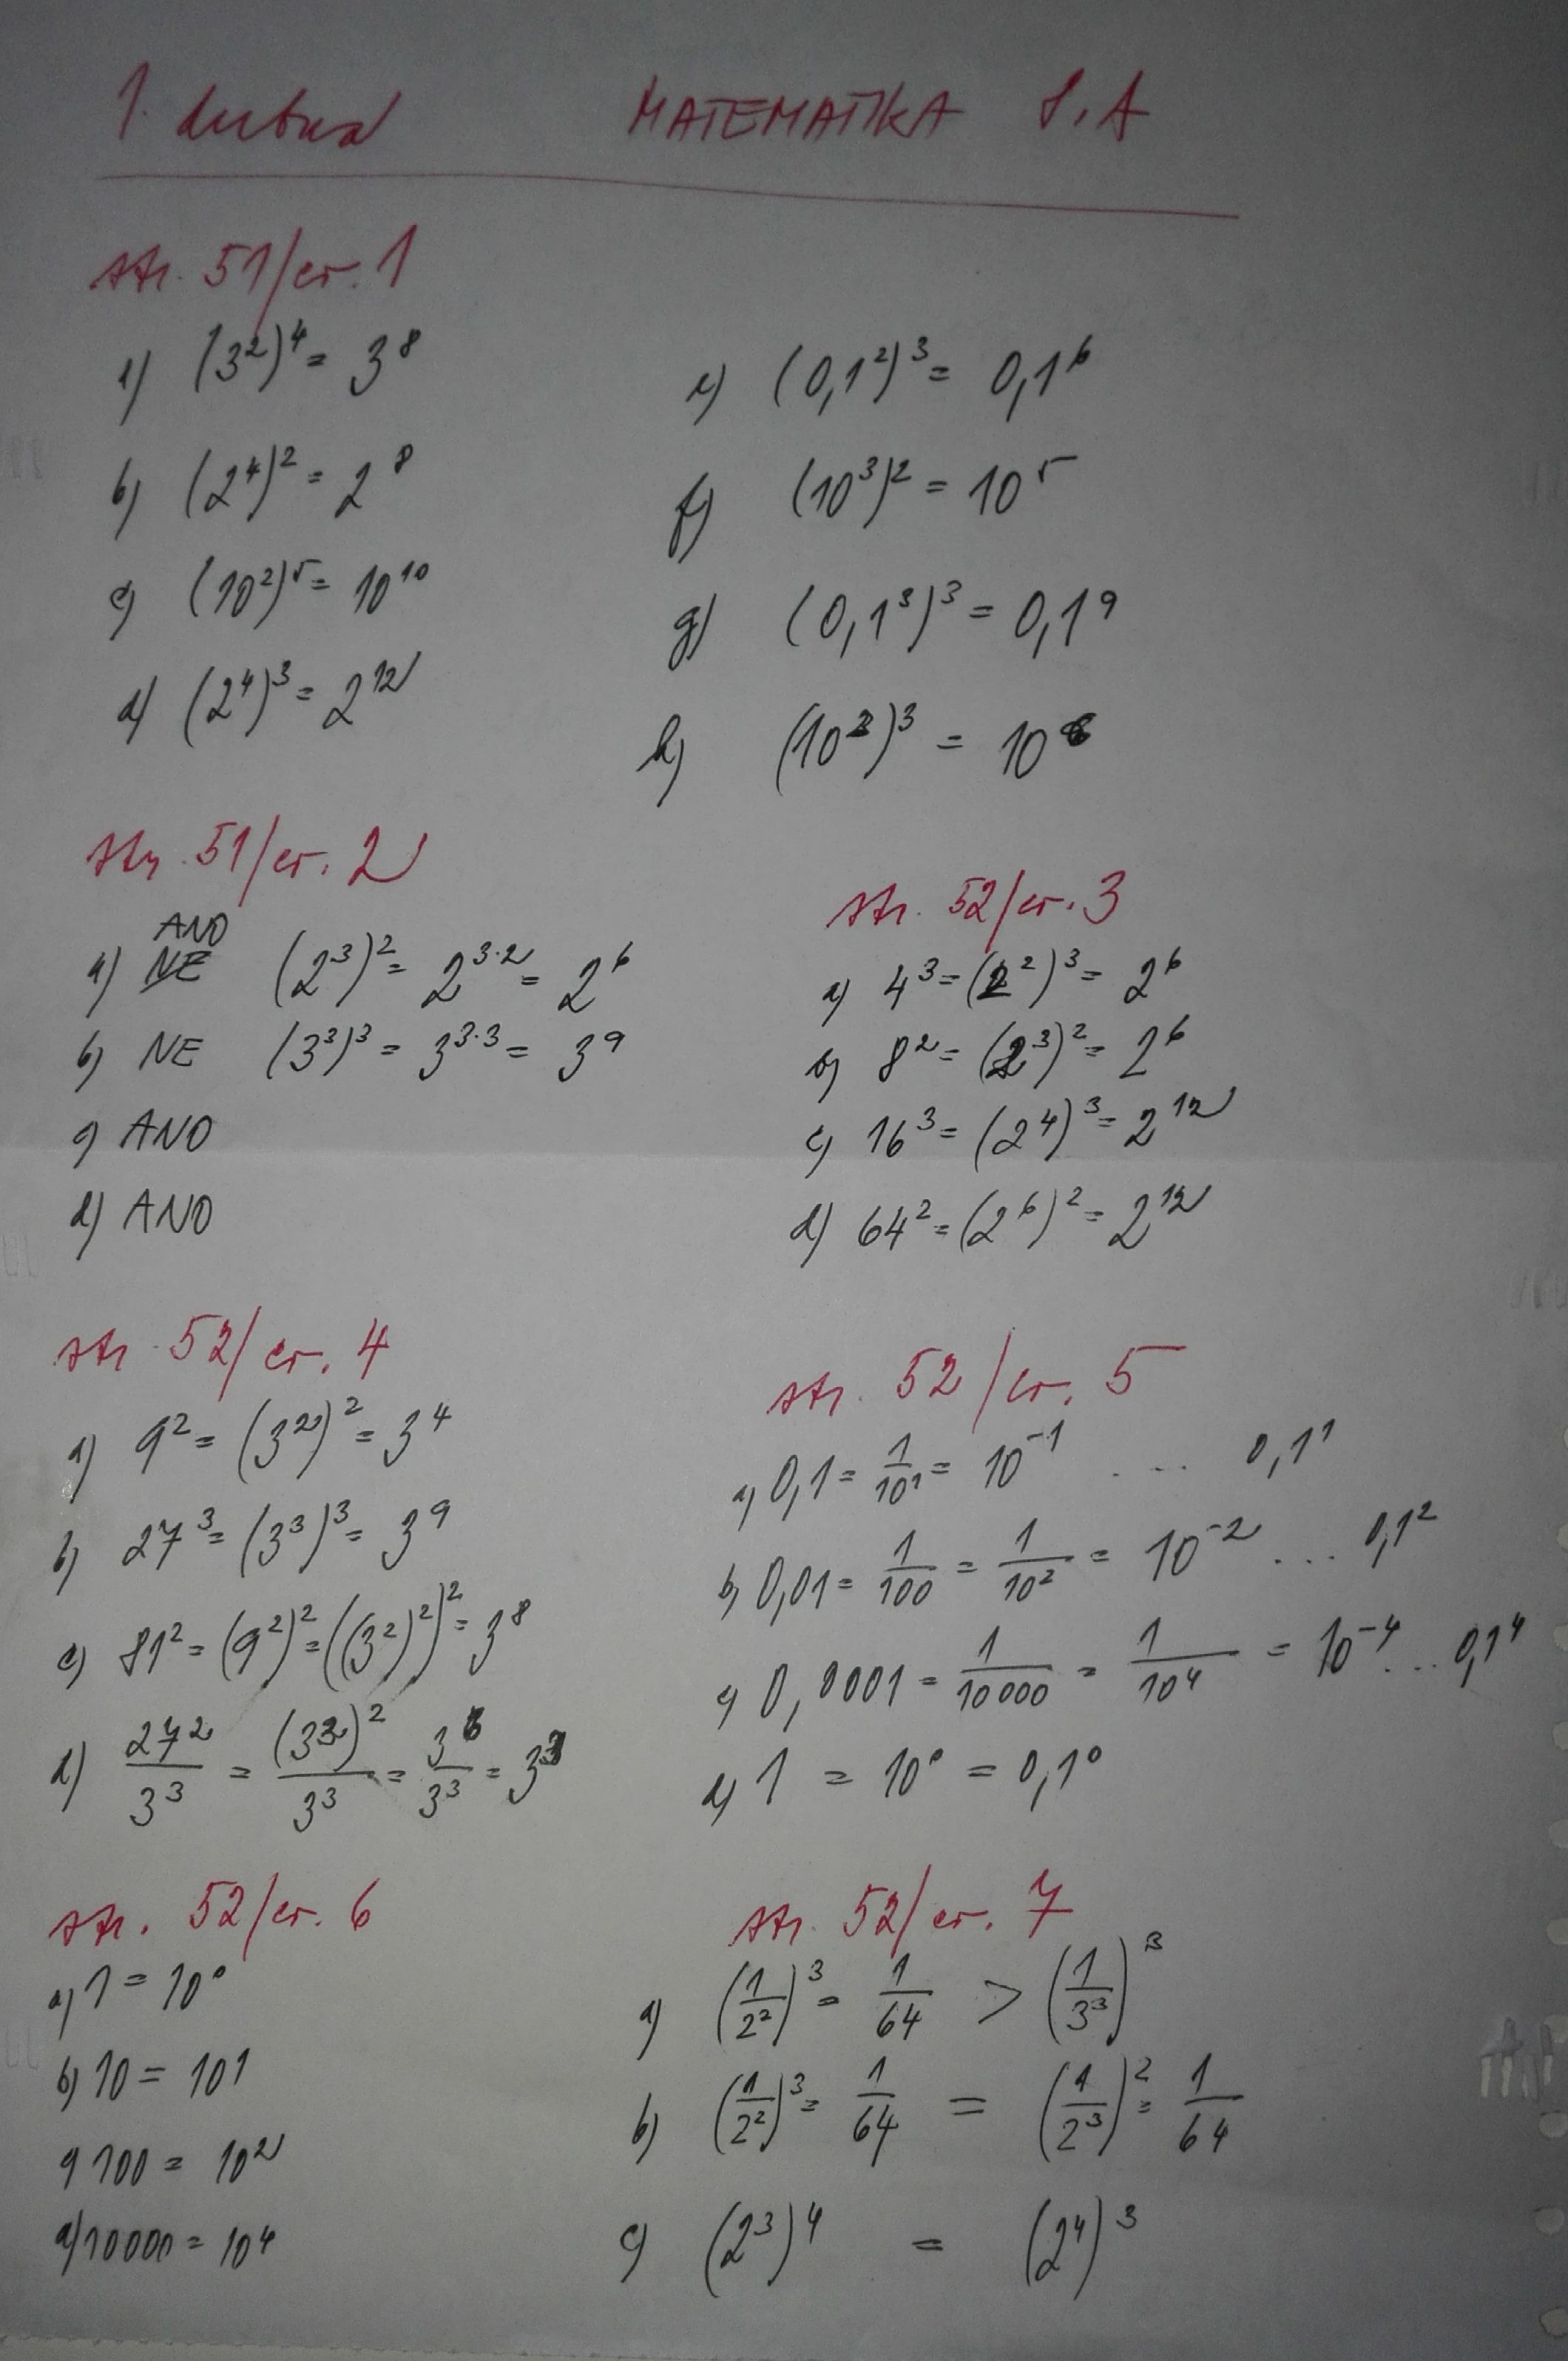 1. dubna MATEMATIKA 8.A
str. 51/cv. 1
a) (3²)⁴ = 3⁸
b) (2⁴)² = 2⁸
c) (10²)⁵ = 10¹⁰
d) (2⁴)³ = 2¹²
e) (0,1²)³ = 0,1⁶
f) (10³)² = 10⁵
g) (0,1³)³ = 0,1⁹
h) (10²)³ = 10⁶
str. 51/cv. 2
ANO
a) NE (2³)² = 2³·² = 2⁶
b) NE (3³)³ = 3³·³ = 3⁹
c) ANO
d) ANO
str. 52/cv. 3
a) 4³ = (2²)³ = 2⁶
b) 8² = (2³)² = 2⁶
c) 16³ = (2⁴)³ = 2¹²
d) 64² = (2⁶)² = 2¹²
str. 52/cv. 4
a) 9² = (3²)² = 3⁴
b) 27³ = (3³)³ = 3⁹
c) 81² = (9²)² = ((3²)²)² = 3⁸
d) 27²/3³ = (3³)²/3³ = 3⁶/3³ = 3³
str. 52/cv. 5
a) 0,1 = 1/10¹ = 10⁻¹ ... 0,1¹
b) 0,01 = 1/100 = 1/10² = 10⁻² ... 0,1²
c) 0,0001 = 1/10000 = 1/10⁴ = 10⁻⁴ ... 0,1⁴
d) 1 = 10⁰ = 0,1⁰
str. 52/cv. 6
a) 1 = 10⁰
b) 10 = 10¹
c) 100 = 10²
d) 10000 = 10⁴
str. 52/cv. 7
a) (1/2²)³ = 1/64 > (1/3³)³
b) (1/2²)³ = 1/64 = (1/2³)² = 1/64
c) (2³)⁴ = (2⁴)³